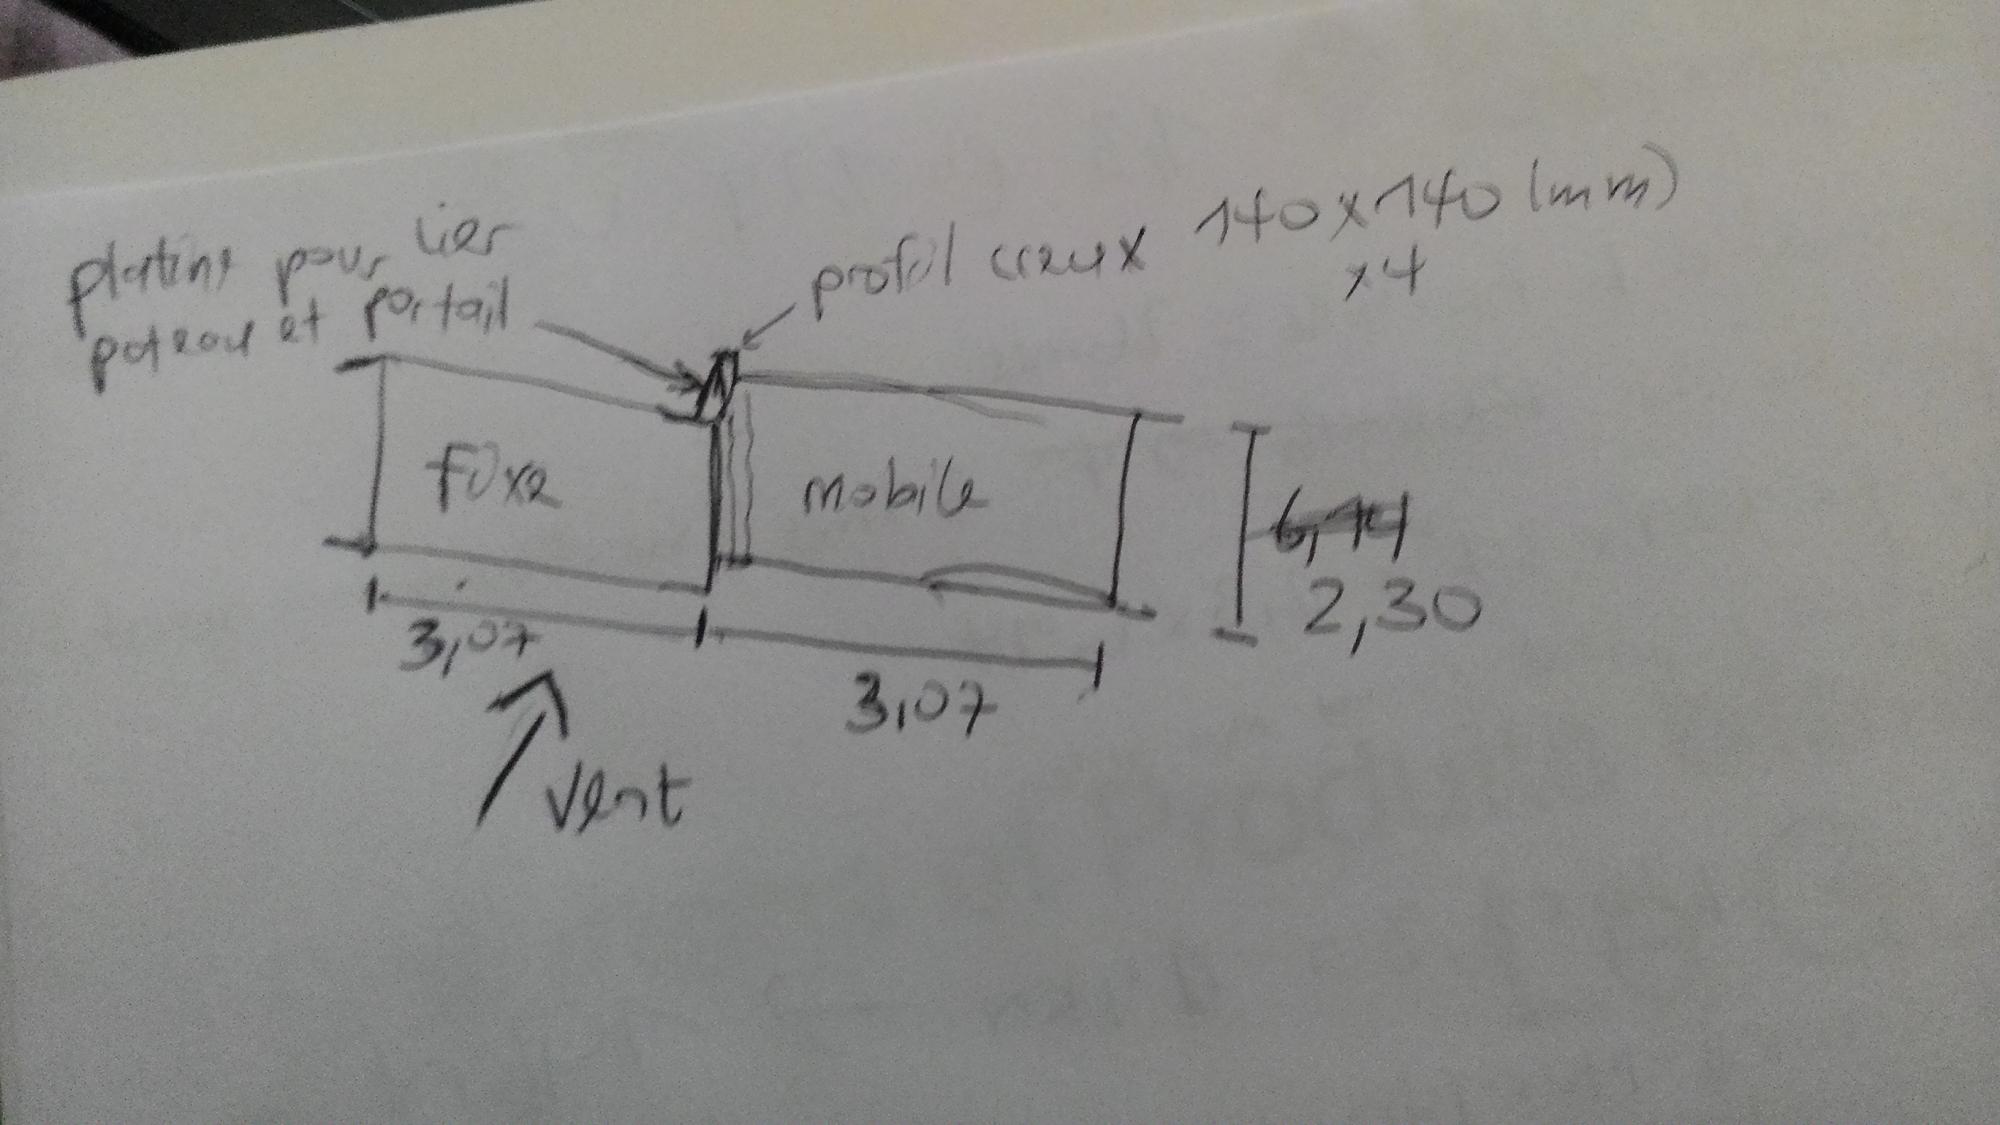 platine pour lier
poteau et portail
profil creux 140x140 (mm)
x4
Fixe
mobile
6,14
2,30
3,07
3,07
Vent